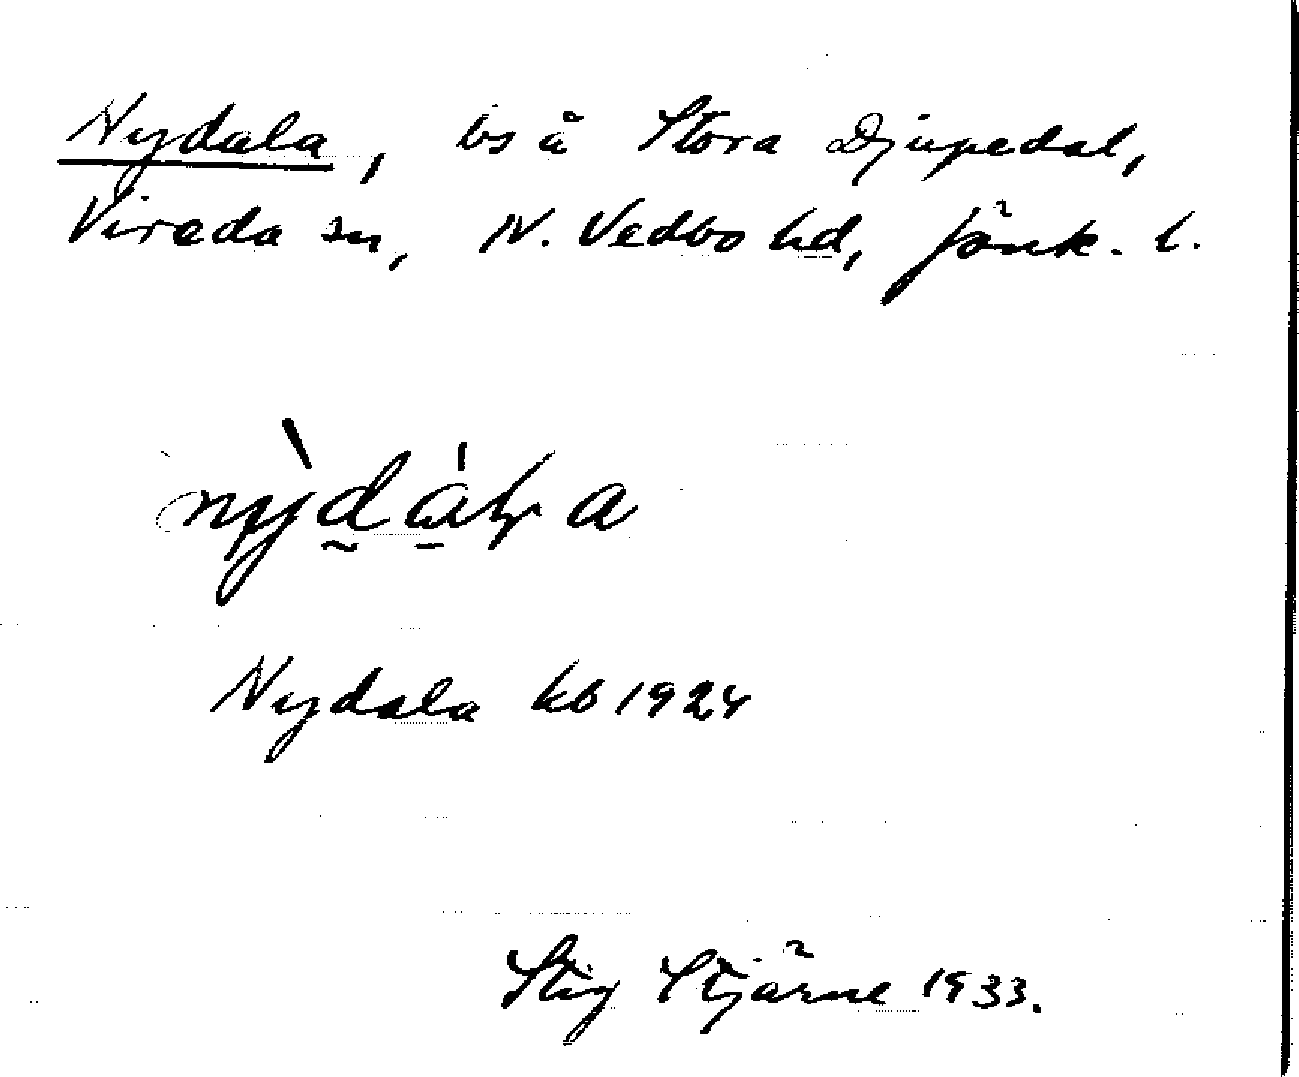 Nydala, bs å Stora Djupedal,
Vireda sn, N. Vedbo hd, Jönk. l.
Nydala kb 1924
Stig Stjärne 1933.